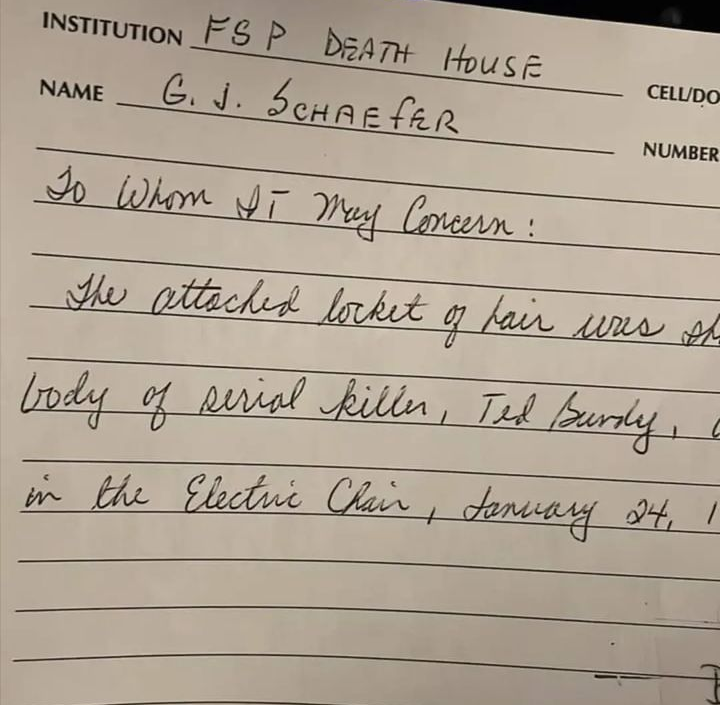 INSTITUTION FSP DEATH HOUSE
CELL/DO
NAME G. J. SCHAEfER
NUMBER
To Whom It May Concern :
The attached locket of hair was sh
body of serial killer, Ted Bundy,
in the Electric Chair, January 24, 1